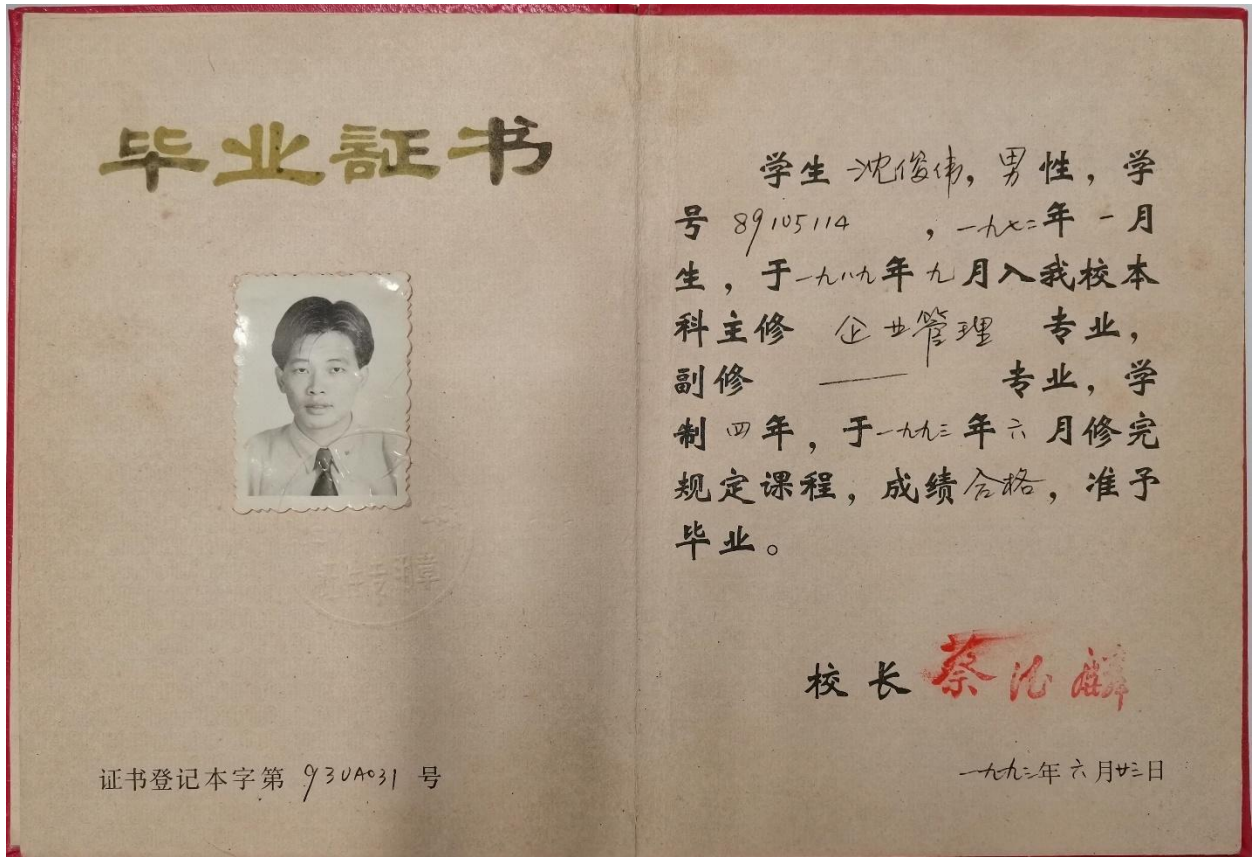 毕业証书
证书登记本字第 93UA031 号
学生 沈俊伟, 男性, 学
号 89105114 , 一九七二年 一月
生, 于一九八九年九月入我校本
科主修 企业管理 专业,
副修 —— 专业, 学
制四年, 于一九九三年六月修完
规定课程, 成绩合格, 准予
毕业。
校长 蔡德麟
一九九三年六月廿三日